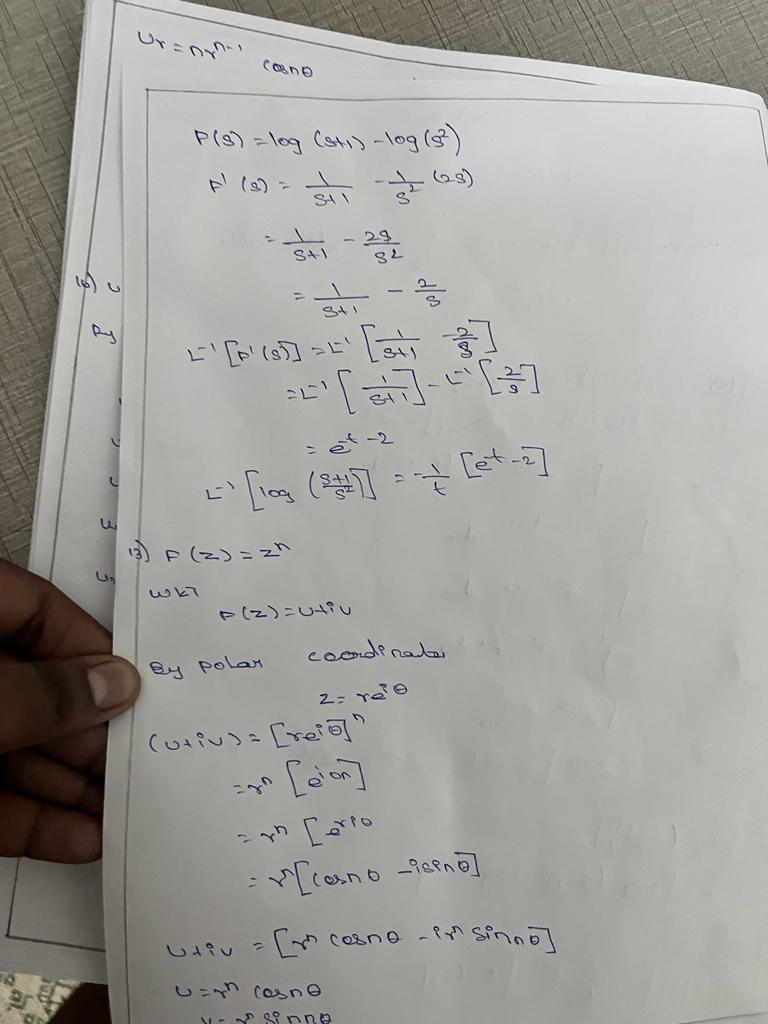 Ur = nrⁿ⁻¹ cosnθ
F(s) = log (s+1) - log(s²)
F' (s) = 1/(s+1) - 1/s² (2s)
= 1/(s+1) - 2s/s²
= 1/(s+1) - 2/s
L⁻¹ [F'(s)] = L⁻¹ [1/(s+1) - 2/s]
= L⁻¹ [1/(s+1)] - L⁻¹ [2/s]
= e⁻ᵗ - 2
L⁻¹ [log ((s+1)/s²)] = -1/t [e⁻ᵗ - 2]
13) F(z) = zⁿ
WKT
F(z) = u+iv
By polar coordinates
z = re^iθ
(u+iv) = [re^iθ]ⁿ
= rⁿ [e^iθn]
= rⁿ [e^niθ
= rⁿ [cosnθ - isinθ]
u+iv = [rⁿ cosnθ - irⁿ sinnθ]
u = rⁿ cosnθ
v = rⁿ sinnθ
16) u
By